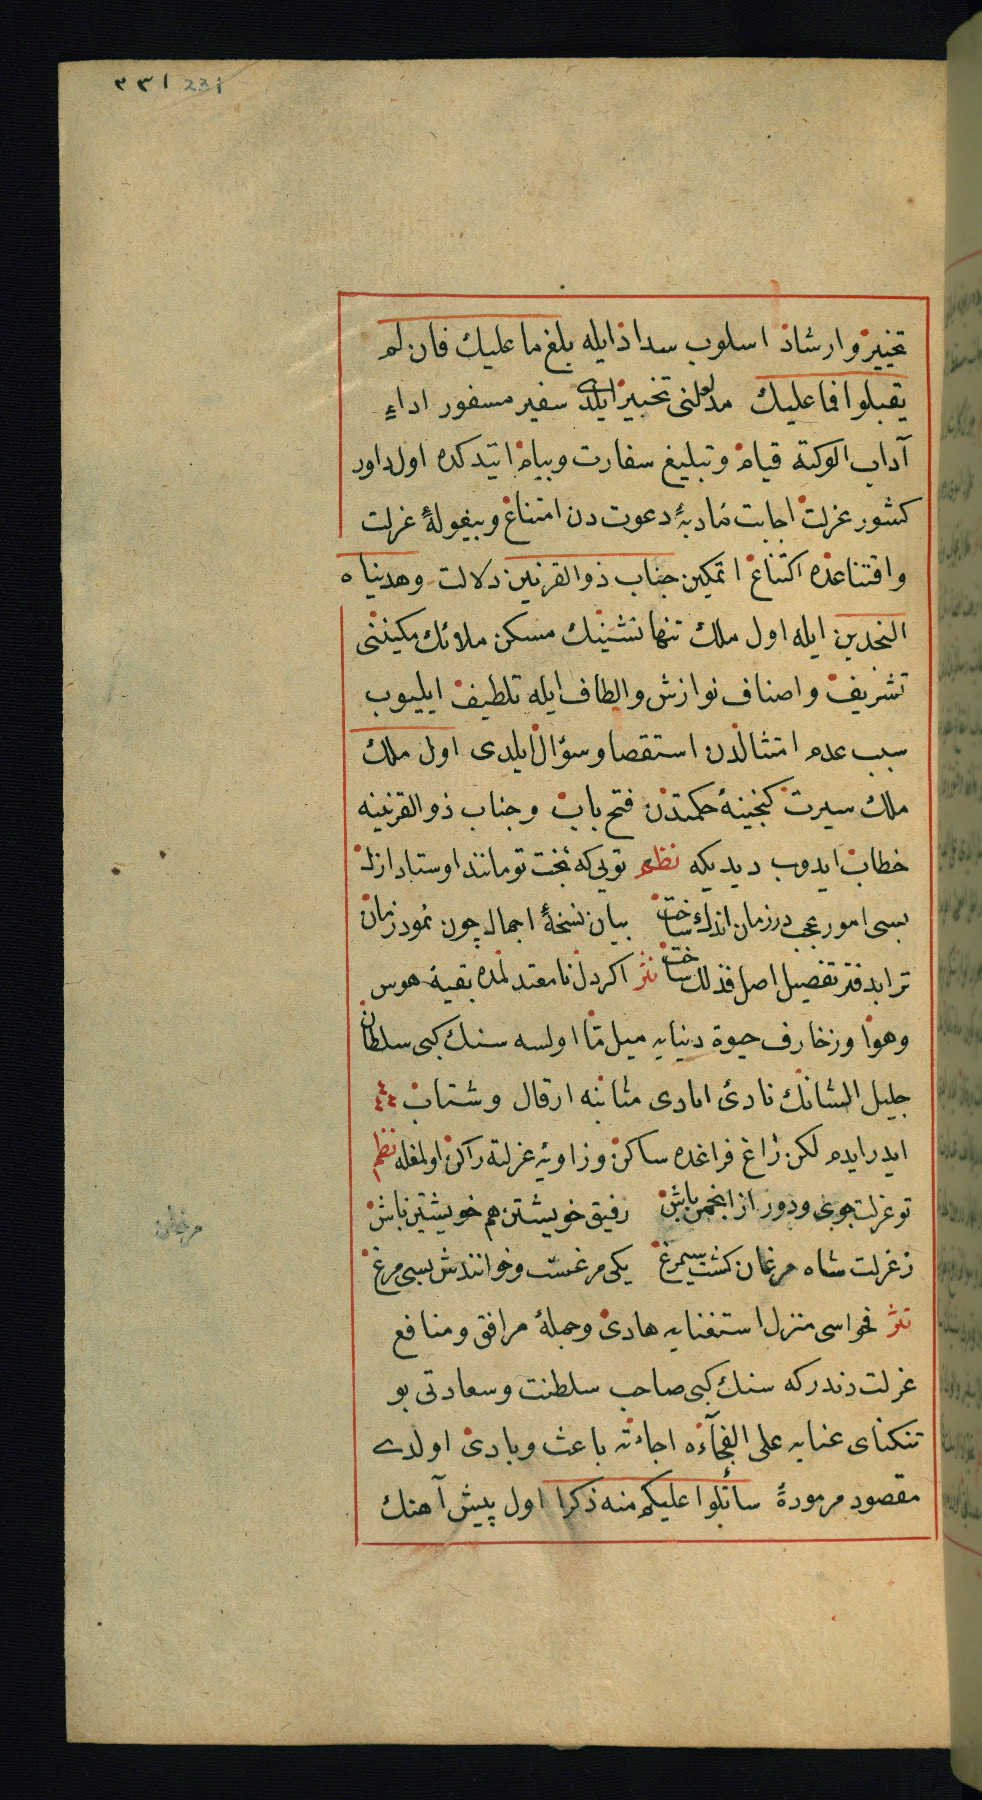 ٢٣١ 231
تخییر و ارشاد اسلوب سداد ایله بلغ ما علیك فان لم
یقبلوا فما علیك مدلولنی تخبیر ایلدی سفیر مسفور اداءِ
آداب الوکته قیام و تبلیغ سفارت و پیام ایتدکده اول داور
کشور عزلت اجابت مادبهٔ دعوت دن امتناع و بیغولهٔ عزلت
و اقتناعده اکتناع اتمکین جناب ذو القرنین دلالت وهدیناه
النجدین ایله اول ملك تنها نشینك مسکن ملائك مکیننی
تشریف و اصناف نوازش و الطاف ایله تلطیف ایلیوب
سبب عدم امتثالدن استقصا و سؤال ایلدی اول ملك
ملك سیرت کنجینهٔ حکمتدن فتح باب و جناب ذو القرنینه
خطاب ایدوب دیدیکه نظم تویی که بخت تو مانند اوستاد ازل
بسی امور عجب در زمان اندك ساخت بیان نسخهٔ اجمال چون نمود زمان
ترا بدفتر تفصیل اصل فذلك ساخت نثر اکر دل نامعتدلمده بقیهٔ هوس
و هوا و زخارف حیوة دنیایه میل ما اولسه سنك کبی سلطان
جلیل الشانك نادیٔ ایادی مشاننه ارقال و شتاب
ایدر ایدم لکن زاغ فراغده ساکن و زاویهٔ عزلته راکن اولمغله نظم
تو عزلت جوی و دور از انجمن باش رفیق خویشتن هم خویشتن باش
ز عزلت شاه مرغان کشت سیمرغ یکی مرغست و خوانندش بسی مرغ
نثر فحواسی منزل استغنایه هادی و جملهٔ مرافق و منافع
عزلت دندر که سنك کبی صاحب سلطنت و سعادتی بو
تنکنای عنایه علی الفجآءه اجاءته باعث و بادی اولدی
مقصود مرمودهٔ سأتلوا علیکم منه ذکرا اول پیش آهنك